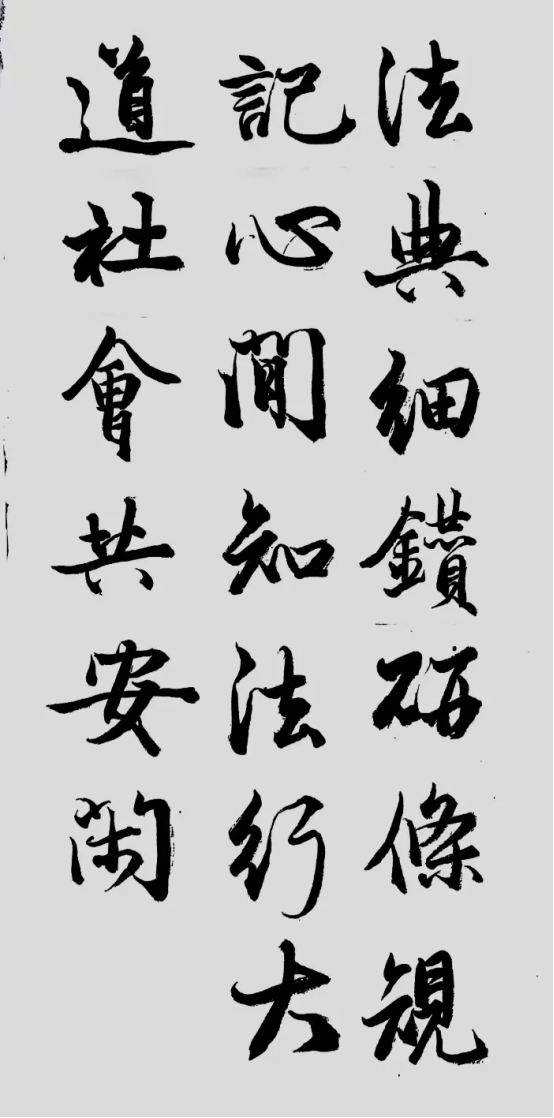 法典細鑽研條規
記心間知法行大
道社會共安閑